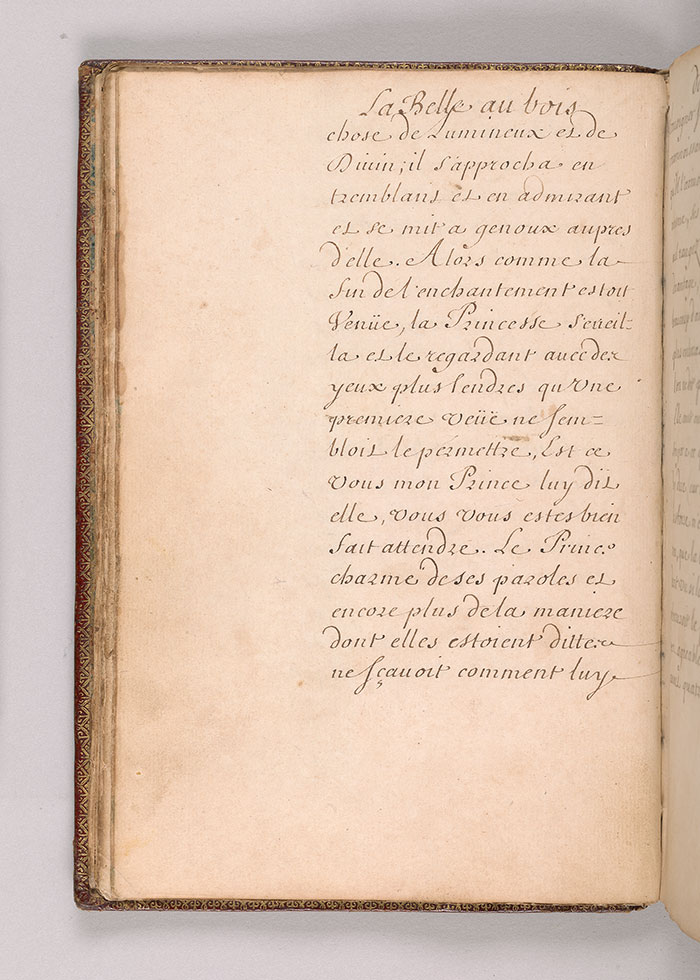 La Belle au bois
chose de Lumineux et de
Divin; il s'approcha en
tremblant et en admirant
et se mit a genoux aupres
d'elle. Alors comme la
fin de l'enchantement estoit
Venüe, la Princesse s'eveil=
la et le regardant avec des
yeux plus tendres qu'vne
premiere veüe ne sem=
bloit le permettre, Est ce
vous mon Prince luy dit
elle, vous vous estes bien
fait attendre. Le Prince
charme de ses paroles et
encore plus de la maniere
dont elles estoient dittes
ne sçavoit comment luy